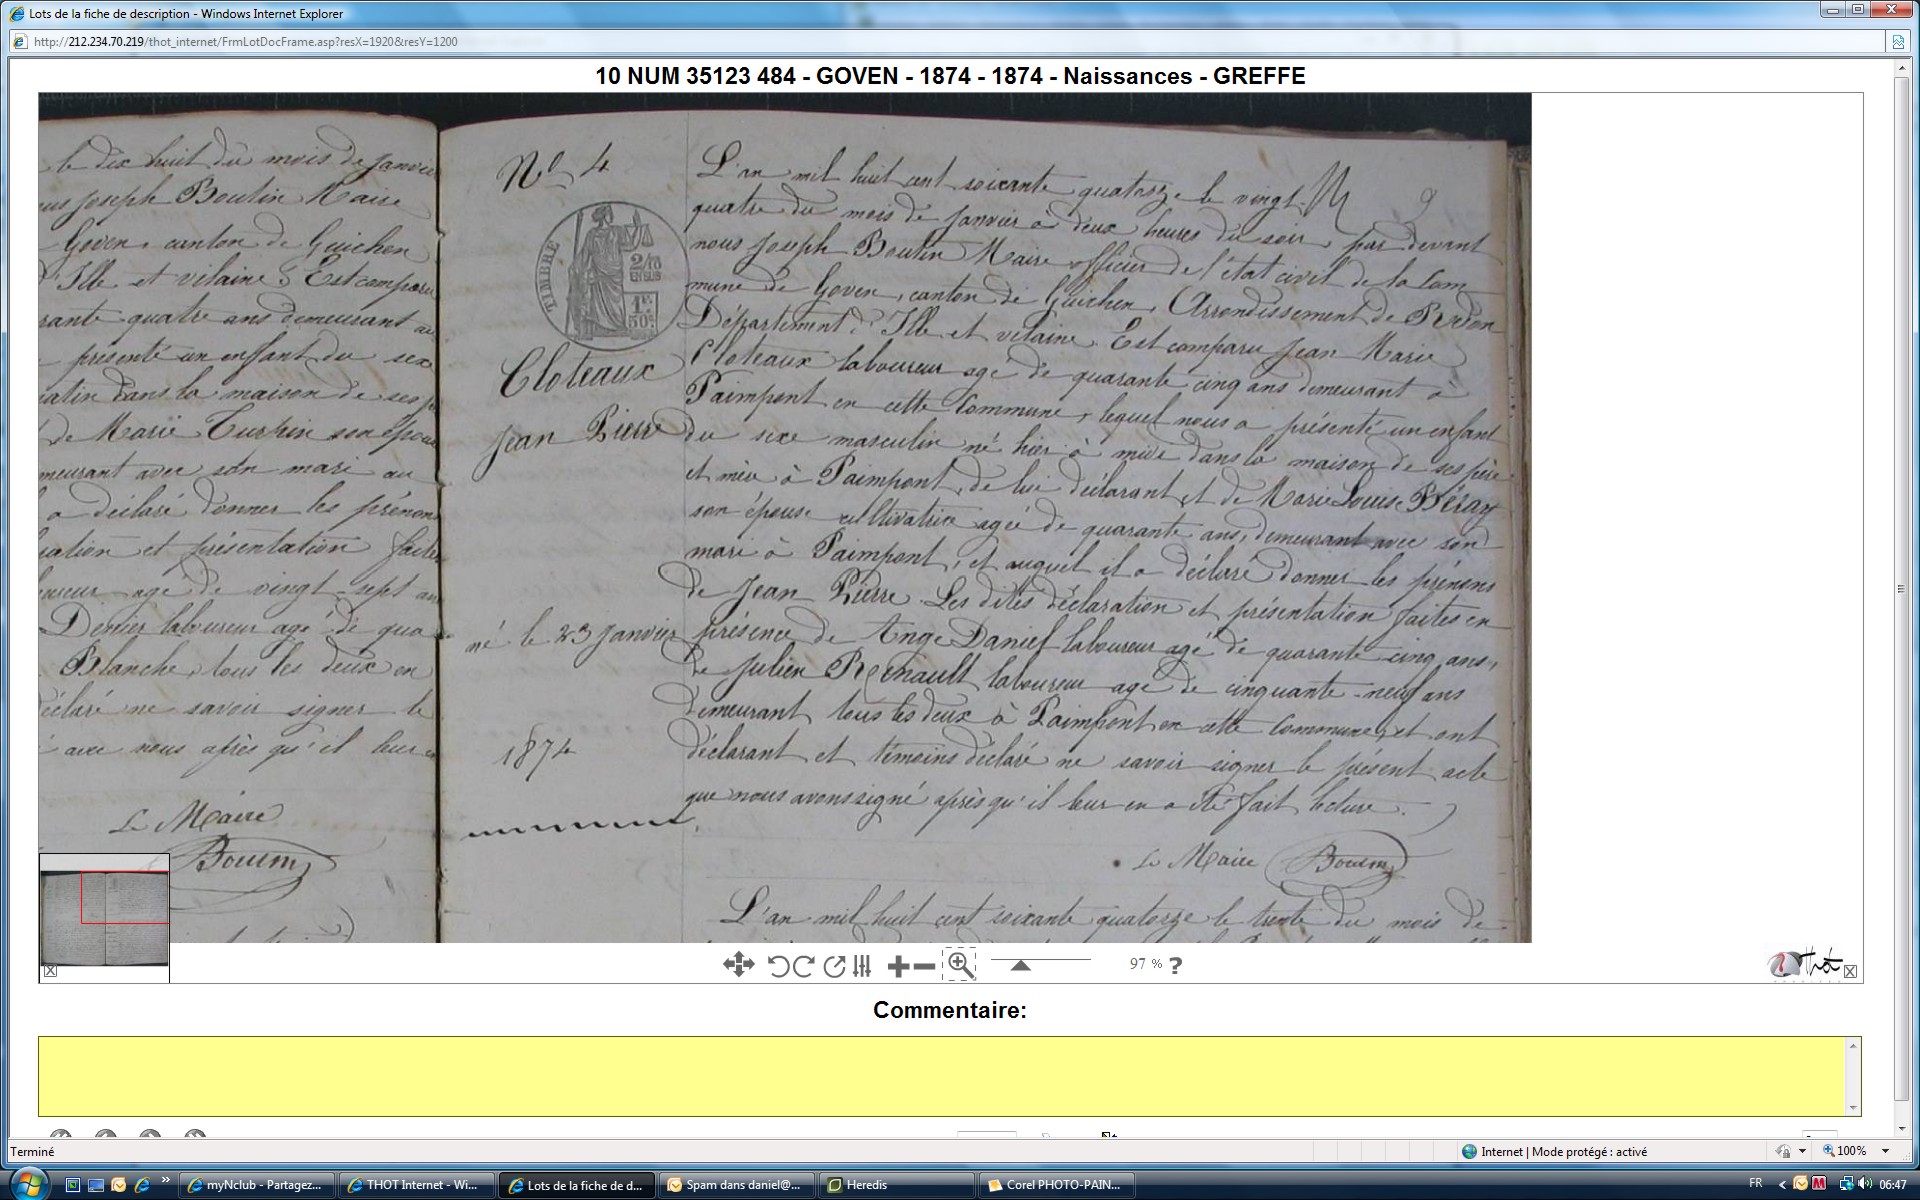 Lots de la fiche de description - Windows Internet Explorer
http://212.234.70.219/thot_internet/FrmLotDocFrame.asp?resX=1920&resY=1200
10 NUM 35123 484 - GOVEN - 1874 - 1874 - Naissances - GREFFE
le dix huit du mois de Janvier
Joseph Boutin Maire
Goven, canton de Guichen
Ille et vilaine. Est comparu
quatre ans demeurant au
présenté un enfant du sexe
dans la maison de ses
de Marie Turpin son épouse
avec son mari au
a déclaré donner les prénoms
et présentation faites
agé de vingt-sept ans
Denier laboureur agé de
Blanche, tous les deux en
déclaré ne savoir signer le
avec nous après qu'il leur
Le Maire
Boutin
No. 4
TIMBRE
2/10
EN SUS
1F.
50c.
Cloteaux
Jean Pierre
né le 23 Janvier
1874
L'an mil huit cent soixante quatorze le vingt
quatre du mois de Janvier à deux heures du soir, par devant
nous Joseph Boutin Maire officier de l'état civil de la Com
mune de Goven, canton de Guichen, Arrondissement de Redon
Département d'Ille et vilaine. Est comparu Jean Marie
Cloteaux laboureur agé de quarante cinq ans demeurant à
Paimpont en cette Commune, lequel nous a présenté un enfant
du sexe masculin né hier à midi dans la maison de ses père
et mère à Paimpont, de lui déclarant et de Marie Louise Béray
son épouse cultivatrice agée de quarante ans, demeurant avec son
mari à Paimpont, et auquel il a déclaré donner les prénoms
de Jean Pierre. Les dites déclaration et présentation faites en
présence de Ange Daniel laboureur agé de quarante cinq ans,
de Julien Renault laboureur agé de cinquante-neuf ans
demeurant tous les deux à Paimpont en cette Commune, et ont
déclarant et témoins déclaré ne savoir signer le présent acte
que nous avons signé après qu'il leur en a été fait lecture.
Le Maire Boutin
L'an mil huit cent soixante quatorze le trente du mois de
97 % ?
Thot
Commentaire:
Terminé
Internet | Mode protégé : activé
100%
myNclub - Partagez...
THOT Internet - Wi...
Lots de la fiche de d...
Spam dans daniel@...
Heredis
Corel PHOTO-PAIN...
FR
06:47